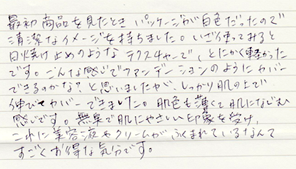 最初商品を見たとき パッケージが白色だったので
清潔なイメージを持ちました。いざ使ってみると
日焼け止めのような テクスチャーで、とにかく軽かった
です。こんな感じでファンデーションのようにカバー
できるのかな?と思いましたが、しっかり肌の上で
伸びてカバーできました。肌色も薄くて肌になじむ
感じです。無臭で肌にやさしい印象を受け、
これに美容液やクリームがふくまれているなんて
すごくお得な気分です。